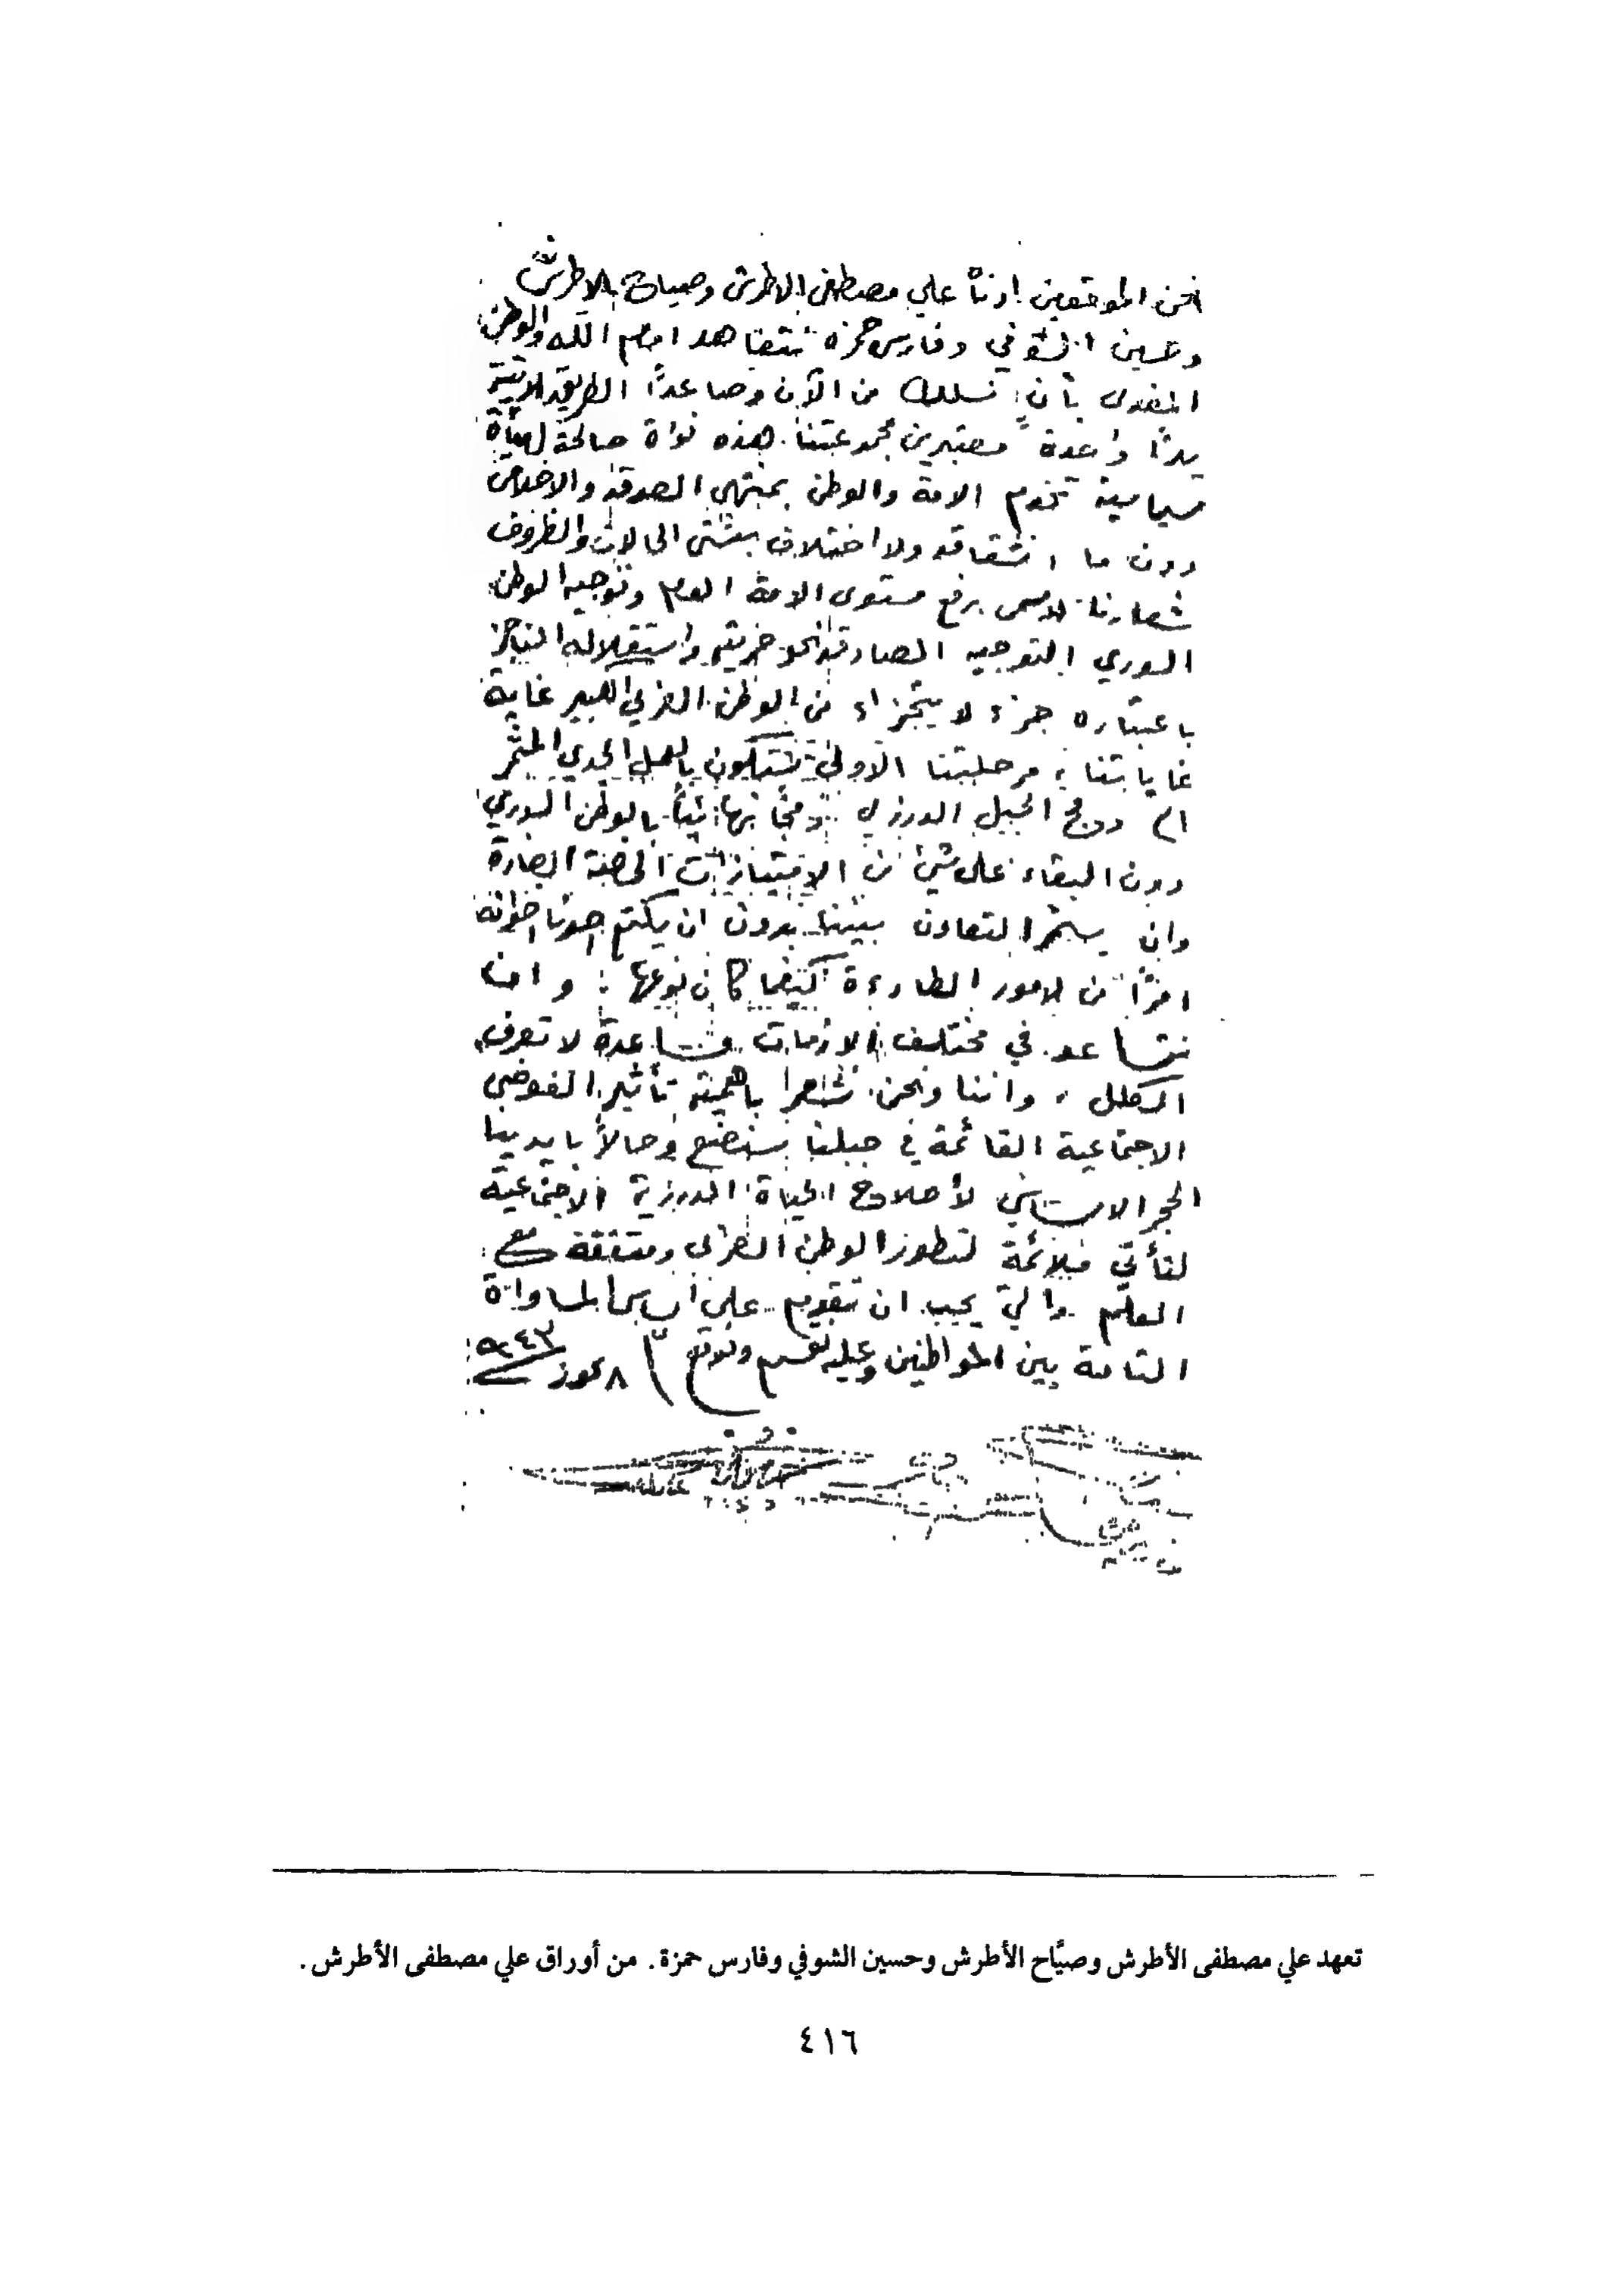 نحن الموقعين ادناه علي مصطفى الاطرش وصياح الاطرش
وحسين الشوفي وفارس حمزه نتعاهد امام الله والوطن
المفدى بأن نسلك من الآن وصاعداً الطريق الاتية
يداً واحدة معتبرين مجموعتنا هذه نواة صالحة لهيأة
سياسية تخدم الامة والوطن بمنتهى الصدق والاخلاص
دون ما انشقاق ولا اختلاف بشتى الحالات والظروف
شعارنا الاسمى رفع مستوى الامة العام وتوجيه الوطن
السوري التوجيه الصادق نحو حريته واستقلاله الناجز
باعتباره جزء لا يتجزاء من الوطن العربي الكبير غاية
غاياتنا ؛ مرحلتنا الأولى ستكون بالعمل الجدي المثمر
الى دمج الجبل الدرزي دمجاً نهائياً بالوطن السوري
دون البقاء على شيئ من الامتيازات المضرة
وان يستمر التعاون بيننا بدون ان يكتم احدنا اخوانه
امراً من الامور الطارءة كيفما كان نوعها ؛ وان
نتساعد في مختلف الازمات مساعدة لا تعرف
الكلل ، واننا ونحن نشعر باهمية تأثير الفوضى
الاجتماعية القائمة في جبلنا سنضع وحالاً بايدينا
الحجر الاساسي لأصلاح الحياة الدرزية الاجتماعية
لتأتي ملائمة لتطور الوطن العربي ومتفقة مع
العلم والتي يجب ان تقوم على اساس المساواة
التامة بين المواطنين وعليه نقسم ونوقع ٨ تموز ٩٤٣
تعهد علي مصطفى الأطرش وصيَّاح الأطرش وحسين الشوفي وفارس حمزة. من أوراق علي مصطفى الأطرش.
٤١٦